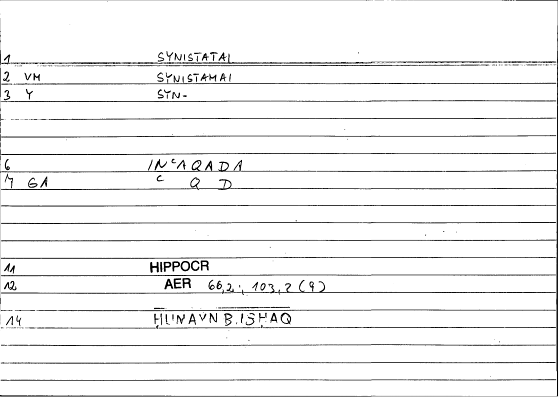 1 SYNISTATAI
2 VM SYNISTAMAI
3 Y SYN-
6 INᶜAQADA
7 GA ᶜ Q D
11 HIPPOCR
12 AER 66,2; 103,2 (9)
14 ḤUNAYN B.ISḤAQ